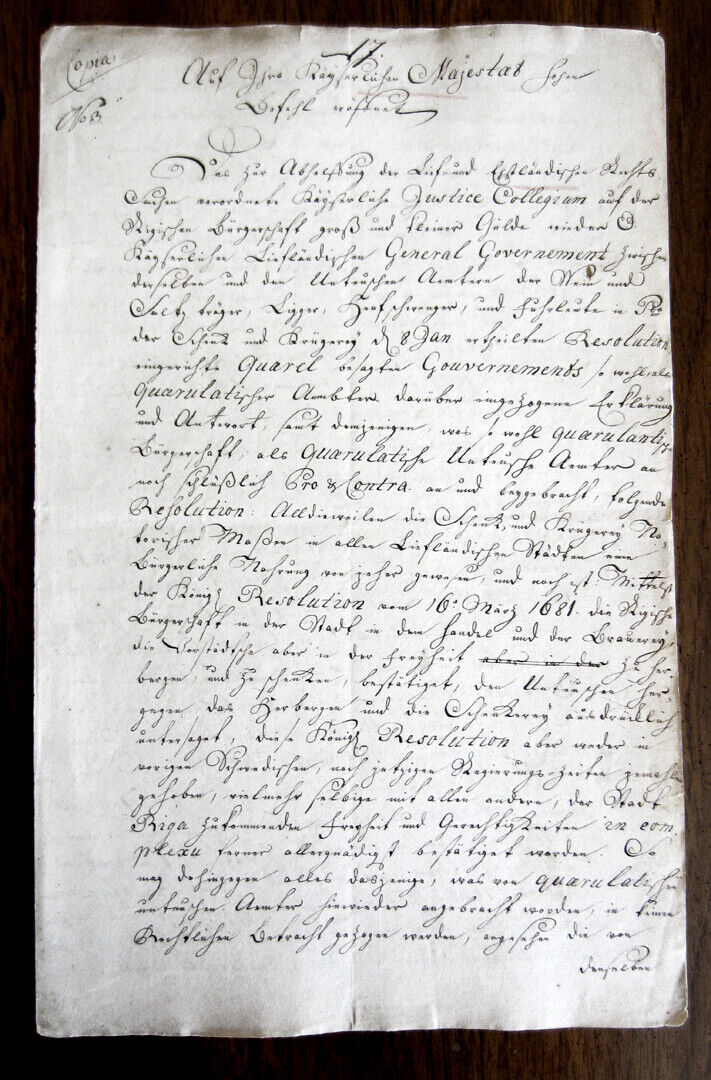 Copia
17.
No 3.
Auf Ihro Kayserlichen Majestät hohen
Befehl eröffnet
Das zur Abhelffung der Lief und Ehstländischen Rechts
Sachen verordnete Kayserliche Justice Collegium auf der
Rigischen Bürgerschaft groß und kleiner Gülde wieder
Kayserlichen Liefländischen General Governement zwischen
derselben und den Unteuschen Aemtern der Wein und
Saltz träger, Ligger, Hanfschwenger, und Fuhrleute in
der Schenk und Krügerey d 8 Jan ertheilten Resolution
eingereichte Quærel besagten Gouvernements so wohl, als
quærulatischer Aembter darüber eingezogene Erklärung
und Antwort, samt demjenigen, was so wohl quærulantische
Bürgerschaft, als quærulatische Unteusche Aemter an
noch schlüßlich Pro & Contra an und beygebracht, folgende
Resolution: Alldieweilen die Schenk und Krügerey No-
torischer Maßen in allen Liefländischen Städten eine
Bürgerliche Nahrung von jeher gewesen, und noch ist: Mittelst
der Königl Resolution vom 16 März 1681. die Rigische
Bürgerschaft in der Stadt in dem Handel und der Brauerey,
die Vorstädtsche aber in der Freyheit aber in der zu her-
bergen und zu schenken, bestätiget, den Unteuschen her-
gegen das Herbergen und die Schenkerey ausdrücklich
untersaget, diese Königl Resolution aber weder in
vorigen Schwedischen, noch jetzigen Regierungs-Zeiten jemahls
gehoben, vielmehr selbige mit allen andern, der Stadt
Riga zukommenden Freyheit und Gerechtigkeiten in com
plexu ferner allergnädigst bestätiget worden. So
mag dahingegen alles dasjenige, was von quærulatischen
unteuschen Aemter hiewieder angebracht worden, in keinen
Rechtlichen Betracht gezogen werden, angesehen die von
denselben